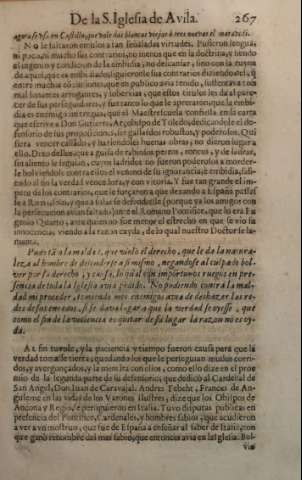 De la S. Iglesia de Avila. 267
agora se vsa en Castilla, que vale dos blancas viejas ò tres nueuas el marauedi.
No le faltaron emulos a tan señaladas virtudes. Pusieron lengua,
ni pocas, ni mucho sus contrarios, no menos que en la doctrina, y siendo
el ingenio y condicion de la embidia, no descansar, sino con la ruyna
de aquel, que es embidiado,
entre muchas ocasiones, que en publico auia tenido,
mal sonantes arrogantes, y soberuias, que estos titulos les da al parecer
de sus perseguidores, y fue tanto lo que le apretaron, que la embidia
es enemiga intrinseca, que el Maestrescuela confiessa en la carta
que escriue a Don Gutierre, Arçobispo de Toledo, dedicandole el defensorio
de sus proposiciones, ser gallardos robustos, y poderosos. Qui
siera vencer callando, y haziendoles buenas obras, no dieron lugar a
ello. Dize dellos, que a guisa de rabiosos perros, roncos, y de ladrar,
sin aliento le seguian, cuyos ladridos no fueron poderosos a morderle
boluiendole contra ellos el veneno de su ignorancia, è embidia, siendo
al fin la verdad vencedora, y con vitoria. Y fue tan grande el impetu
de los contrarios, que le fue fuerça que dexando a España passasse
a Roma, y que a solas se defendiesse (porque ya los amigos con
la persecucion auian faltado) ante el Romano Pontifice, que lo era Eugenio
Quarto, a vnos buenos fue menor el estrecho en que se vio su
innocencia, viendo a la razon cayda, de lo qual nuestro Doctor se lamenta.
Pudo tã la maldad, que violò el derecho, que le da la naturaleza
a el hombre de defenderse a si mismo, negandose al culpado boluer
por su derecho, y causa, lo qual con importunos ruegos en presencia
de toda la Iglesia auia pedido. No pudiendo contra la maldad
mi proceder, temiendo mis enemigos auia de deshazer las redes
de sus enredos, se dio lugar a que la verdad se oyesse, que
como el fin de la violencia es quitar de su lugar la razon no es oyda.
Al fin tuuole, y la paciencia y tiempo fueron causa para que la
verdad tomasse tierra, quedando los que le perseguian mudos corridos,
y avergonçados, y la mentira con ellos, como ello dize en el proemio
de la segunda parte de su defensorio, que dedicò al Cardenal de
San Angel, Don Iuan de Carvajal. Andres Tebeht, Frances de Anguleme
en las vidas de los Varones ilustres, dize que los Obispos de
Ancona y Regio, le persiguieron en Italia. Tuvo disputas publicas en
presencia del Pontifice, Cardenales, y hombres sabios, que acudieron
a ver a vn mostruo, que fue de España a enseñar al saber de Italia; con
que ganò renombre del mas sabio, que entonces auia en la Iglesia. Bol-
vio